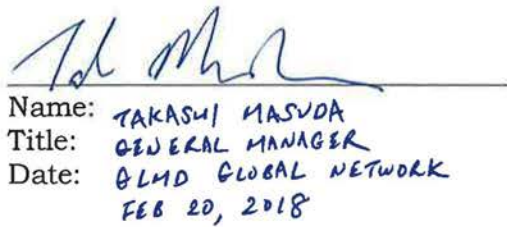 Name: TAKASHI MASUDA
Title: GENERAL MANAGER
Date: GLMD GLOBAL NETWORK
FEB 20, 2018